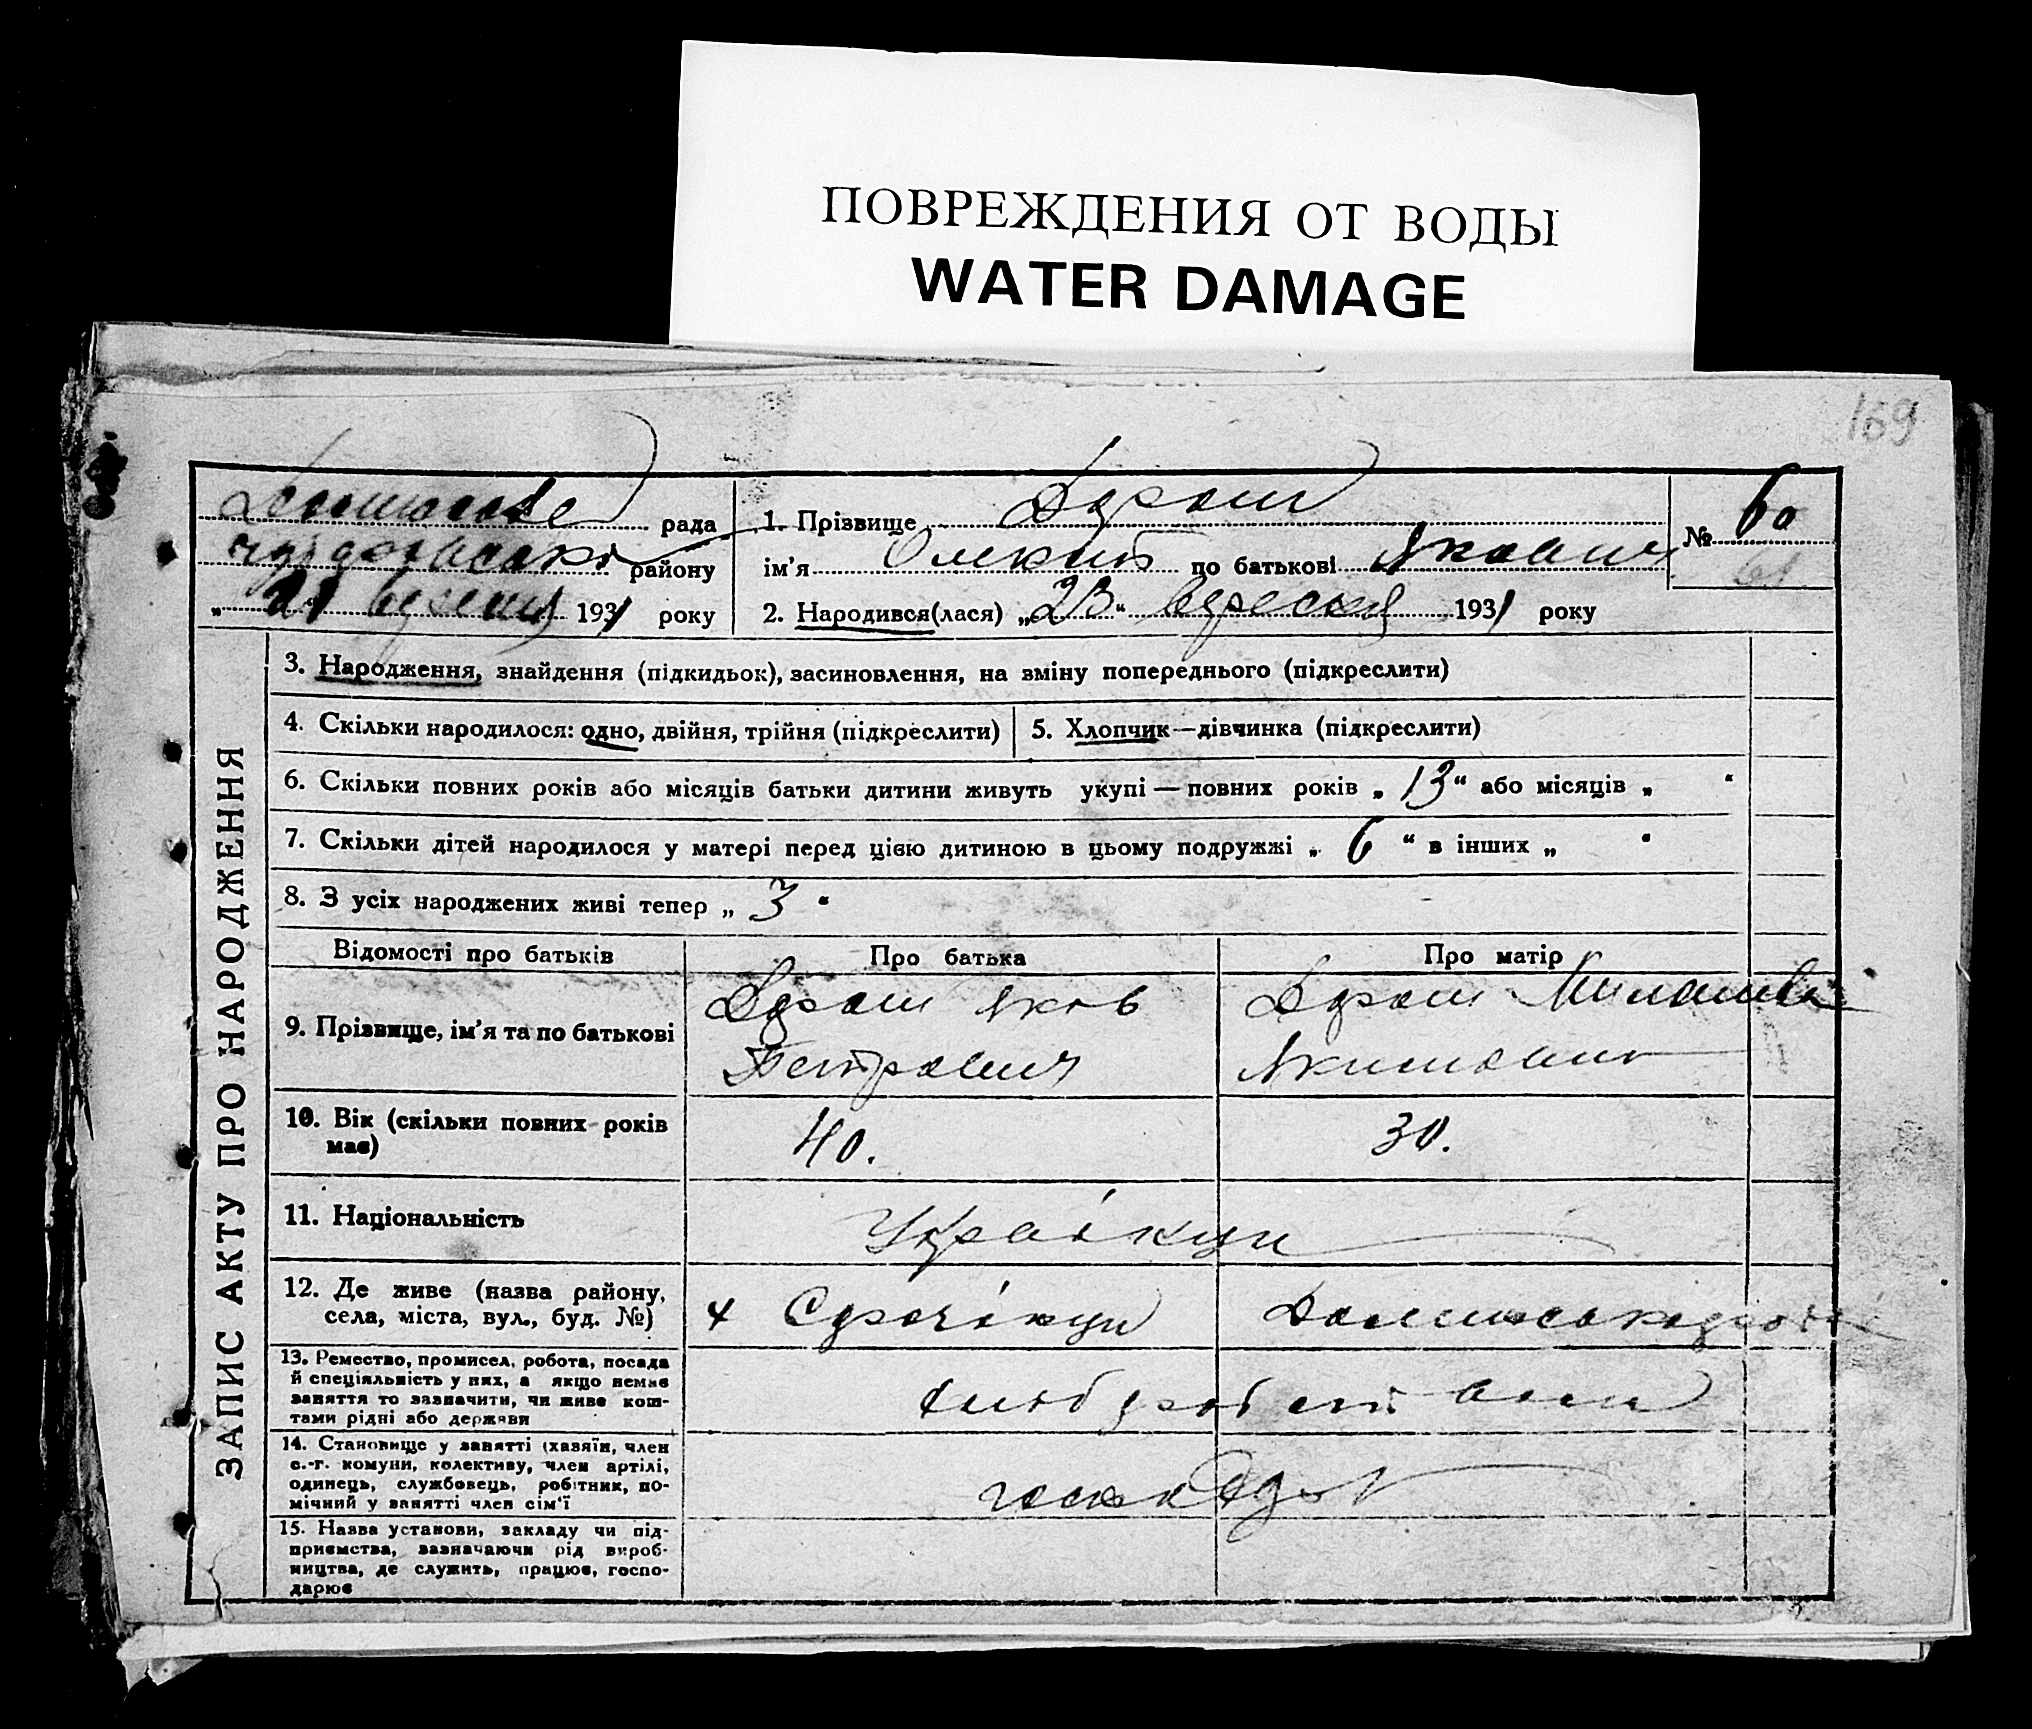 ПОВРЕЖДЕНИЯ ОТ ВОДЫ
WATER DAMAGE
169
рада
району
1931 року
1. Прізвище
№ 60
61
ім'я по батькові Якович
2. Народився(лася) „23“ вересня 1931 року
ЗАПИС АКТУ ПРО НАРОДЖЕННЯ
3. Народження, знайдення (підкидьок), засиновлення, на зміну попереднього (підкреслити)
4. Скільки народилося: одно, двійня, трійня (підкреслити)
5. Хлопчик—дівчинка (підкреслити)
6. Скільки повних років або місяців батьки дитини живуть укупі — повних років „ 13 “ або місяців „ “
7. Скільки дітей народилося у матері перед цією дитиною в цьому подружжі „ 6 “ в інших „ “
8. З усіх народжених живі тепер „ 3 “
Відомості про батьків
Про батька
Про матір
9. Прізвище, ім'я та по батькові
Яков
Петрович
10. Вік (скільки повних років
має)
40.
30.
11. Національність
Українци
12. Де живе (назва району,
села, міста, вул., буд. №)
13. Ремество, промисел, робота, посада
й спеціяльність у них, а якщо немає
заняття то зазначити, чи живе кош-
тами рідні або держави
14. Становище у занятті (хазяїн, член
с.-г. комуни, колективу, член артілі,
одинець, службовець, робітник, по-
мічний у занятті член сім'ї
15. Назва установи, закладу чи під-
приємства, зазначаючи рід вироб-
ництва, де служить, працює, госпо-
дарює